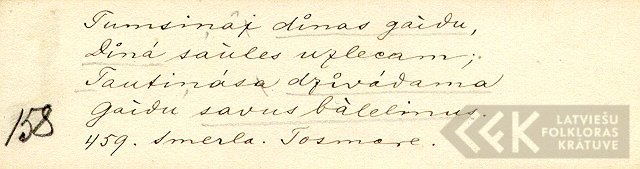 Tumsināj dīnas gaidu,
Dīnā saūles uzlecam;
Tautināsa dzīvādama
Gaidu savus bālelinus.
158
459. Smerla. Tosmare.
LATVIEŠU
FOLKLORAS
KRĀTUVE